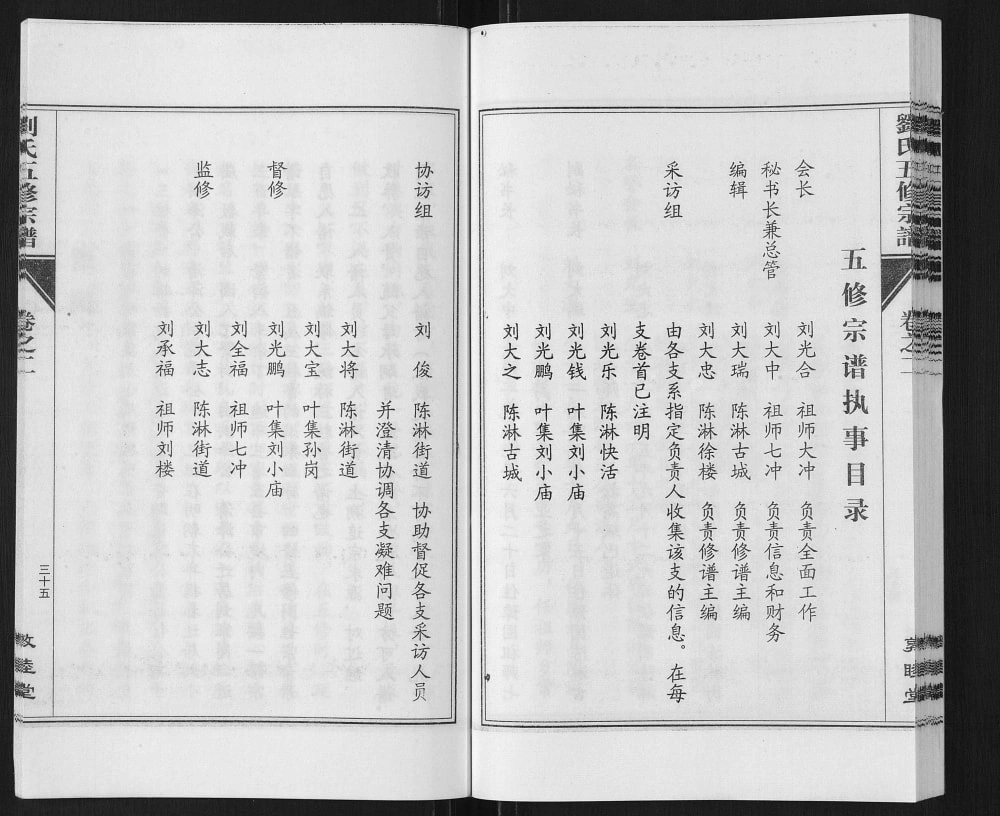 劉氏五修宗譜
卷之二
敦睦堂
五修宗谱执事目录
会长 刘光合 祖师大冲 负责全面工作
秘书长兼总管 刘大中 祖师七冲 负责信息和财务
编辑 刘大瑞 陈淋古城 负责修谱主编
刘大忠 陈淋徐楼 负责修谱主编
采访组 由各支系指定负责人收集该支的信息。在每
支卷首已注明
刘光乐 陈淋快活
刘光钱 叶集刘小庙
刘光鹏 叶集刘小庙
刘大之 陈淋古城
协访组 刘俊 陈淋街道 协助督促各支采访人员
并澄清协调各支凝难问题
刘大将 陈淋街道
刘大宝 叶集孙岗
督修 刘光鹏 叶集刘小庙
刘全福 祖师七冲
监修 刘大志 陈淋街道
刘承福 祖师刘楼
劉氏五修宗譜
卷之二
三十五
敦睦堂